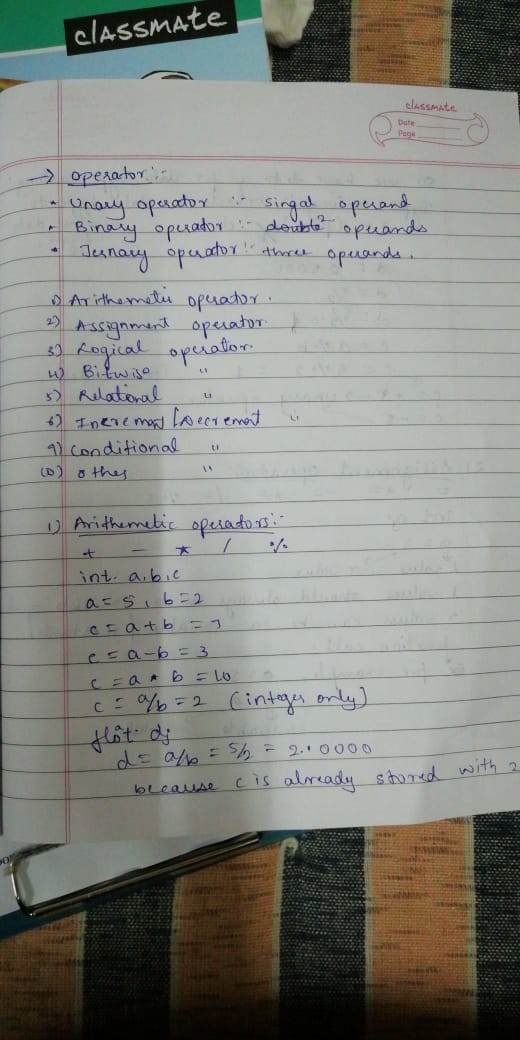 classmate
classmate
Date
Page
→ operator :-
• Unary operator :- singal operand
• Binary operator :- double 2 operands
• Ternary operator :- three operands.
1) Arithemetic operator.
2) Assignment operator.
3) Logical operator.
4) Bitwise "
5) Relational "
6) Increment / Decrement "
9) conditional "
10) other "
1) Arithemetic operators :-
+ - * / %
int. a, b, c
a = 5, b = 2
c = a + b = 7
c = a - b = 3
c = a * b = 10
c = a/b = 2 (integer only)
float d;
d = a/b = 5/2 = 2.0000
because c is already stored with 2